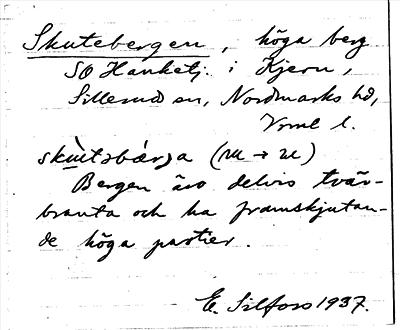 Skutebergen, höga berg
SO Hanketj. i Kjern,
Sillerud sn, Nordmarks hd,
Vrml l.
skùtsbǽrja (ɯ → u)
Bergen äro delvis tvär-
branta och ha framskjutan-
de höga partier.
E. Silfors 1937.